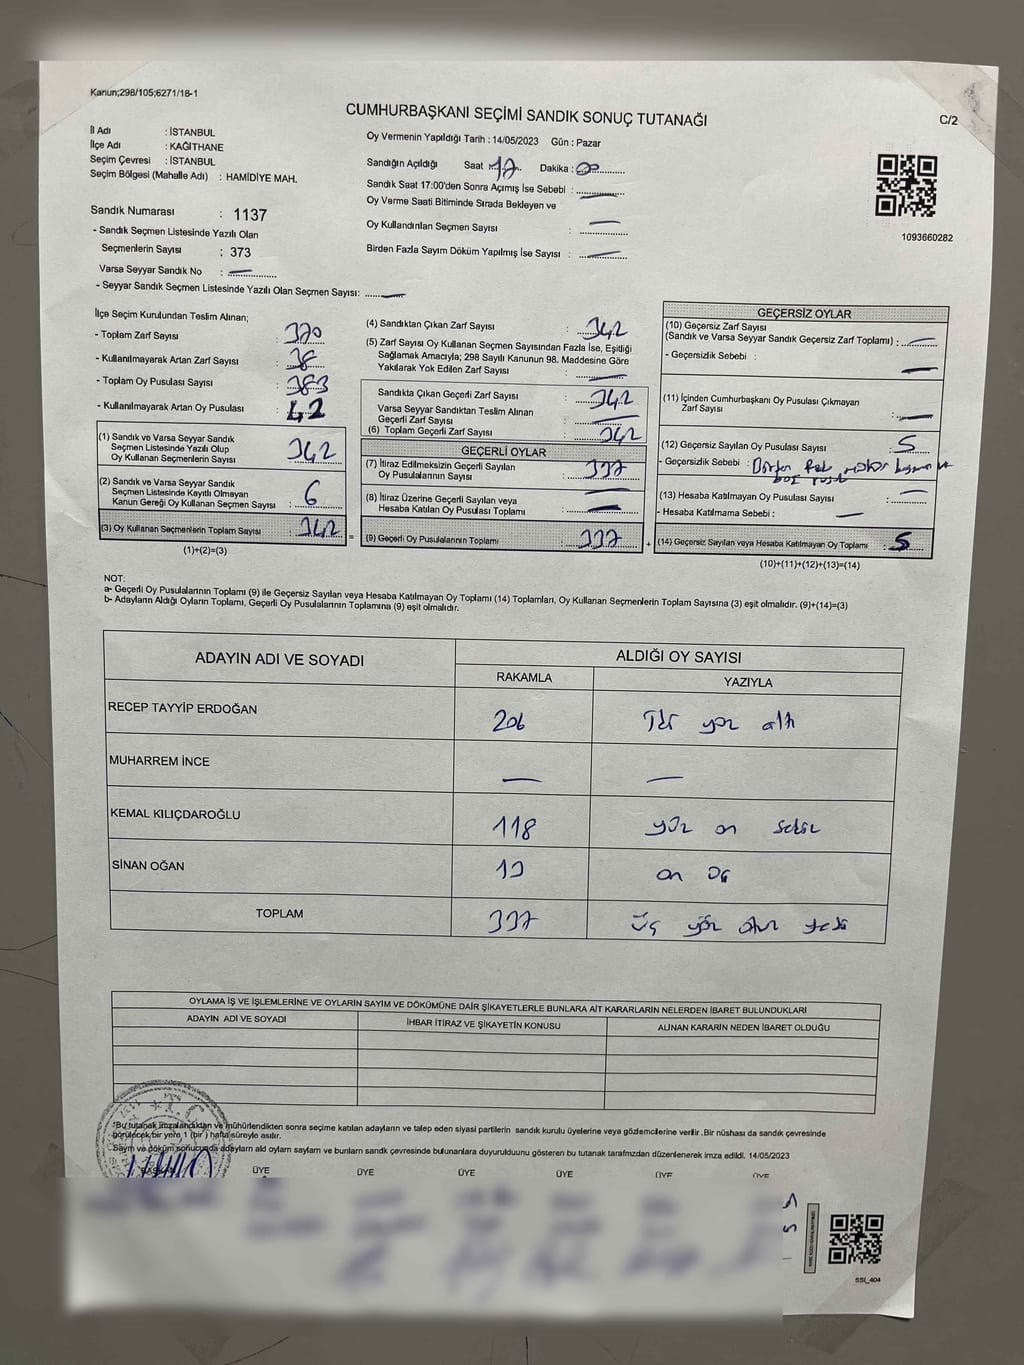 Kanun;298/105;6271/18-1
CUMHURBAŞKANI SEÇİMİ SANDIK SONUÇ TUTANAĞI
C/2
İl Adı : İSTANBUL
İlçe Adı : KAĞITHANE
Seçim Çevresi : İSTANBUL
Seçim Bölgesi (Mahalle Adı) : HAMİDİYE MAH.
Sandık Numarası : 1137
- Sandık Seçmen Listesinde Yazılı Olan
Seçmenlerin Sayısı : 373
Varsa Seyyar Sandık No : —
- Seyyar Sandık Seçmen Listesinde Yazılı Olan Seçmen Sayısı: —
Oy Vermenin Yapıldığı Tarih : 14/05/2023 Gün : Pazar
Sandığın Açıldığı Saat : 17 Dakika : 00
Sandık Saat 17:00'den Sonra Açılmış İse Sebebi : —
Oy Verme Saati Bitiminde Sırada Bekleyen ve
Oy Kullandırılan Seçmen Sayısı : —
Birden Fazla Sayım Döküm Yapılmış İse Sayısı : —
1093660282
İlçe Seçim Kurulundan Teslim Alınan;
- Toplam Zarf Sayısı : 370
- Kullanılmayarak Artan Zarf Sayısı : 38
- Toplam Oy Pusulası Sayısı : 383
- Kullanılmayarak Artan Oy Pusulası : 42
(1) Sandık ve Varsa Seyyar Sandık
Seçmen Listesinde Yazılı Olup
Oy Kullanan Seçmenlerin Sayısı : 342
(2) Sandık ve Varsa Seyyar Sandık
Seçmen Listesinde Kayıtlı Olmayan
Kanun Gereği Oy Kullanan Seçmen Sayısı : 6
(3) Oy Kullanan Seçmenlerin Toplam Sayısı : 342
(1)+(2)=(3)
(4) Sandıktan Çıkan Zarf Sayısı : 342
(5) Zarf Sayısı Oy Kullanan Seçmen Sayısından Fazla İse, Eşitliği
Sağlamak Amacıyla; 298 Sayılı Kanunun 98. Maddesine Göre
Yakılarak Yok Edilen Zarf Sayısı : —
Sandıkta Çıkan Geçerli Zarf Sayısı : 342
Varsa Seyyar Sandıktan Teslim Alınan
Geçerli Zarf Sayısı : —
(6) Toplam Geçerli Zarf Sayısı : 342
GEÇERLİ OYLAR
(7) İtiraz Edilmeksizin Geçerli Sayılan
Oy Pusulalarının Sayısı : 337
(8) İtiraz Üzerine Geçerli Sayılan veya
Hesaba Katılan Oy Pusulası Toplamı : —
(9) Geçerli Oy Pusulalarının Toplamı : 337
GEÇERSİZ OYLAR
(10) Geçersiz Zarf Sayısı
(Sandık ve Varsa Seyyar Sandık Geçersiz Zarf Toplamı) : —
- Geçersizlik Sebebi : —
(11) İçinden Cumhurbaşkanı Oy Pusulası Çıkmayan
Zarf Sayısı : —
(12) Geçersiz Sayılan Oy Pusulası Sayısı : 5
- Geçersizlik Sebebi :
(13) Hesaba Katılmayan Oy Pusulası Sayısı : —
- Hesaba Katılmama Sebebi : —
(14) Geçersiz Sayılan veya Hesaba Katılmayan Oy Toplamı : 5
(10)+(11)+(12)+(13)=(14)
NOT:
a- Geçerli Oy Pusulalarının Toplamı (9) ile Geçersiz Sayılan veya Hesaba Katılmayan Oy Toplamı (14) Toplamları, Oy Kullanan Seçmenlerin Toplam Sayısına (3) eşit olmalıdır. (9)+(14)=(3)
b- Adayların Aldığı Oyların Toplamı, Geçerli Oy Pusulalarının Toplamına (9) eşit olmalıdır.
ADAYIN ADI VE SOYADI ALDIĞI OY SAYISI
RAKAMLA YAZIYLA
RECEP TAYYİP ERDOĞAN 206 yüz altı
MUHARREM İNCE — —
KEMAL KILIÇDAROĞLU 118 yüz on sekiz
SİNAN OĞAN 13 on üç
TOPLAM 337 üç yüz otuz yedi
OYLAMA İŞ VE İŞLEMLERİNE VE OYLARIN SAYIM VE DÖKÜMÜNE DAİR ŞİKAYETLERLE BUNLARA AİT KARARLARIN NELERDEN İBARET BULUNDUKLARI
ADAYIN ADI VE SOYADI İHBAR İTİRAZ VE ŞİKAYETİN KONUSU ALINAN KARARIN NEDEN İBARET OLDUĞU
*Bu tutanak imzalandıktan ve mühürlendikten sonra seçime katılan adayların ve talep eden siyasi partilerin sandık kurulu üyelerine veya gözlemcilerine verilir .Bir nüshası da sandık çevresinde
görülecek bir yere 1 (bir ) hafta süreyle asılır.
Sayım ve döküm sonucunda adayların aldı oyların sayların ve bunların sandk çevresinde bulunanlara duyurulduunu gösteren bu tutanak tarafmzdan düzenlenerek imza edildi. 14/05/2023
T.C.
BAŞKAN ÜYE ÜYE ÜYE ÜYE ÜYE ÜYE
SSI_404